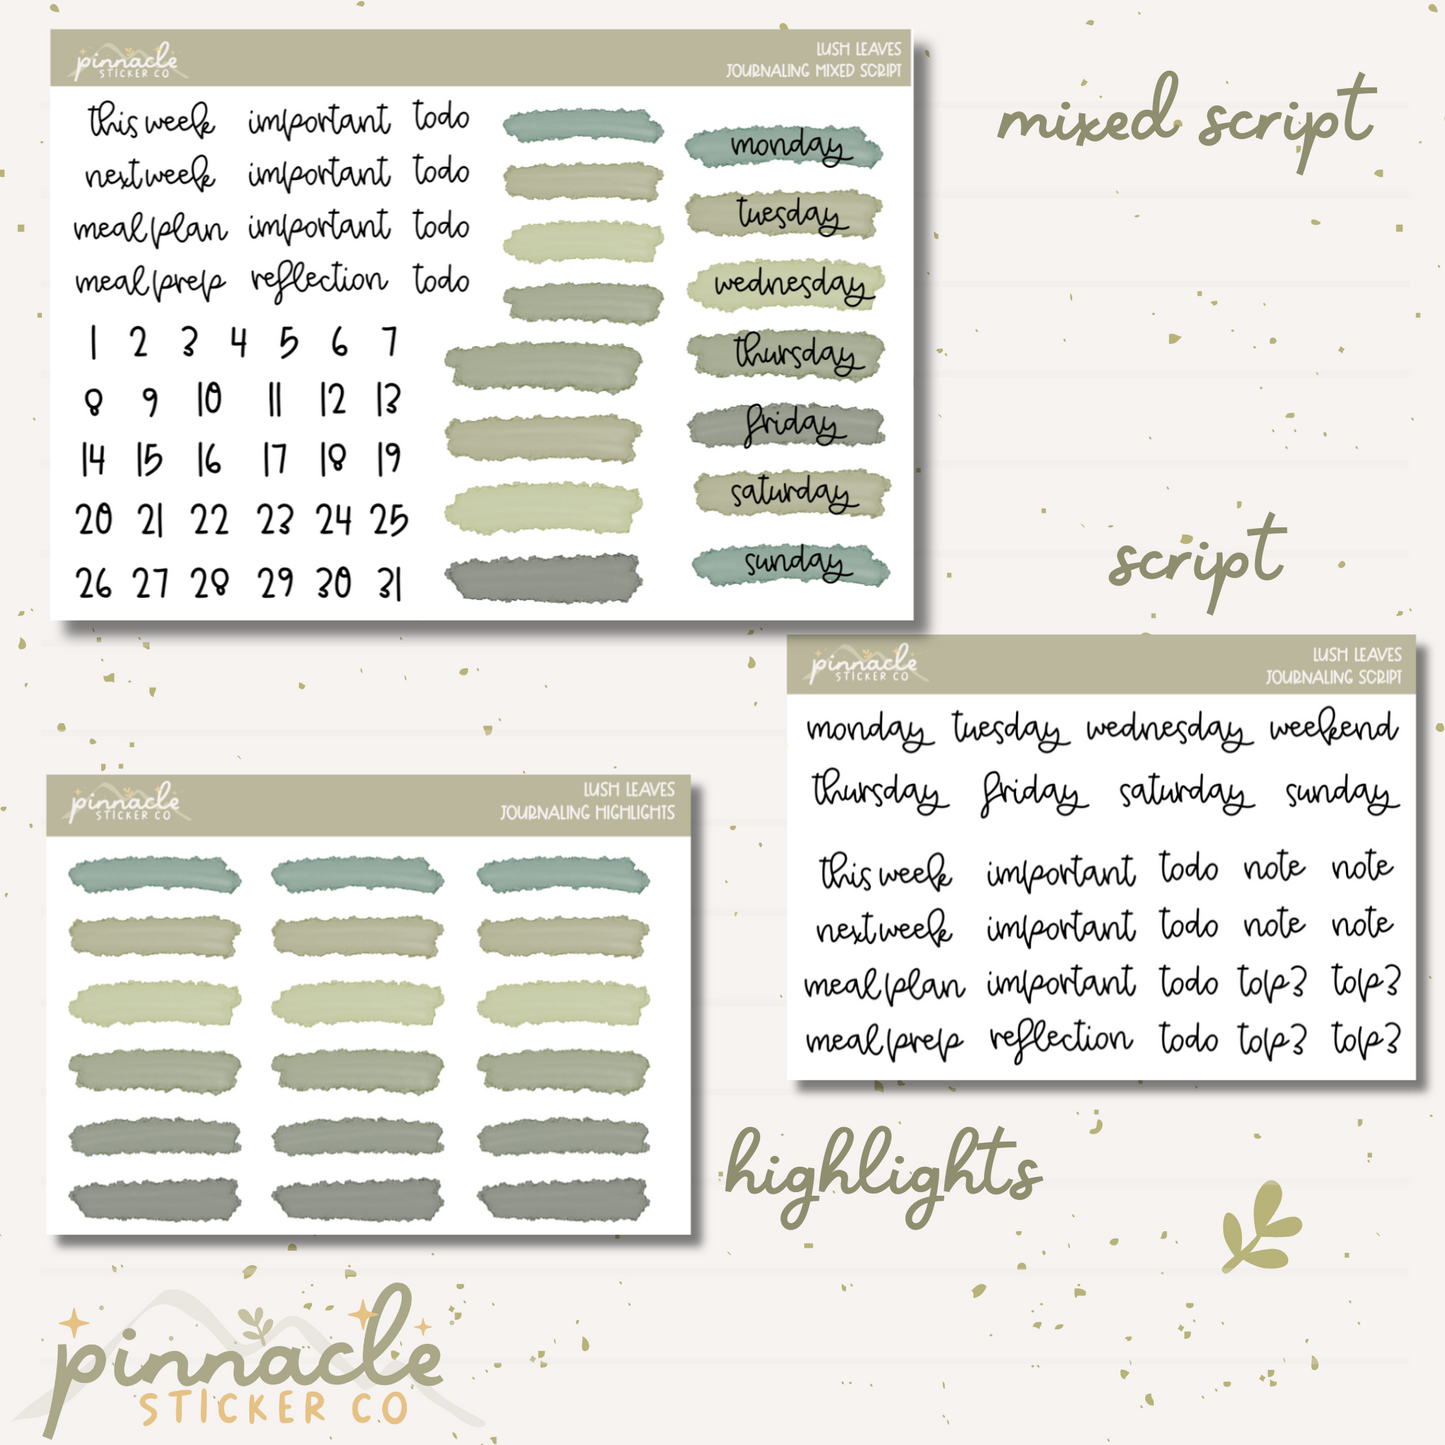 pinnacle
STICKER CO
LUSH LEAVES
JOURNALING MIXED SCRIPT
this week important todo
next week important todo
meal plan important todo
meal prep reflection todo
1 2 3 4 5 6 7
8 9 10 11 12 13
14 15 16 17 18 19
20 21 22 23 24 25
26 27 28 29 30 31
monday
tuesday
wednesday
thursday
friday
saturday
sunday
mixed script
script
pinnacle
STICKER CO
LUSH LEAVES
JOURNALING SCRIPT
monday tuesday wednesday weekend
thursday friday saturday sunday
this week important todo note note
next week important todo note note
meal plan important todo top 3 top 3
meal prep reflection todo top 3 top 3
pinnacle
STICKER CO
LUSH LEAVES
JOURNALING HIGHLIGHTS
highlights
pinnacle
STICKER CO